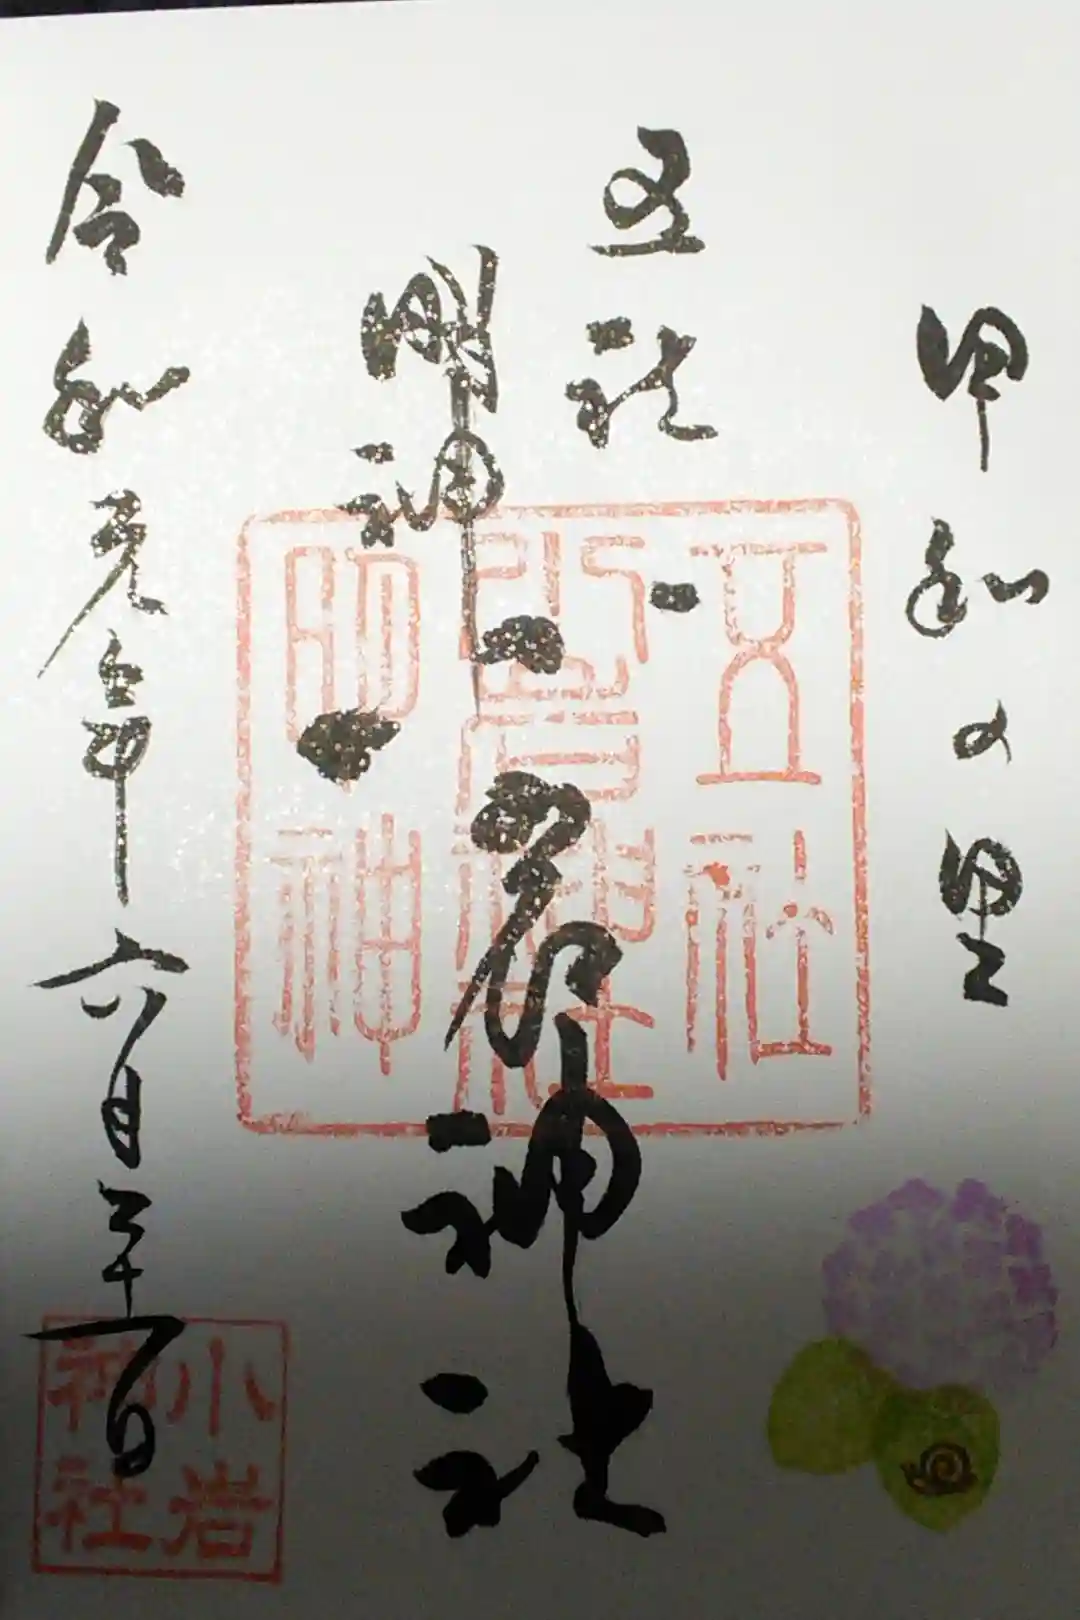 甲和の里
五社
明神
小岩神社
令和元年六月二十一日
五社
小岩神社
明神
小岩
神社